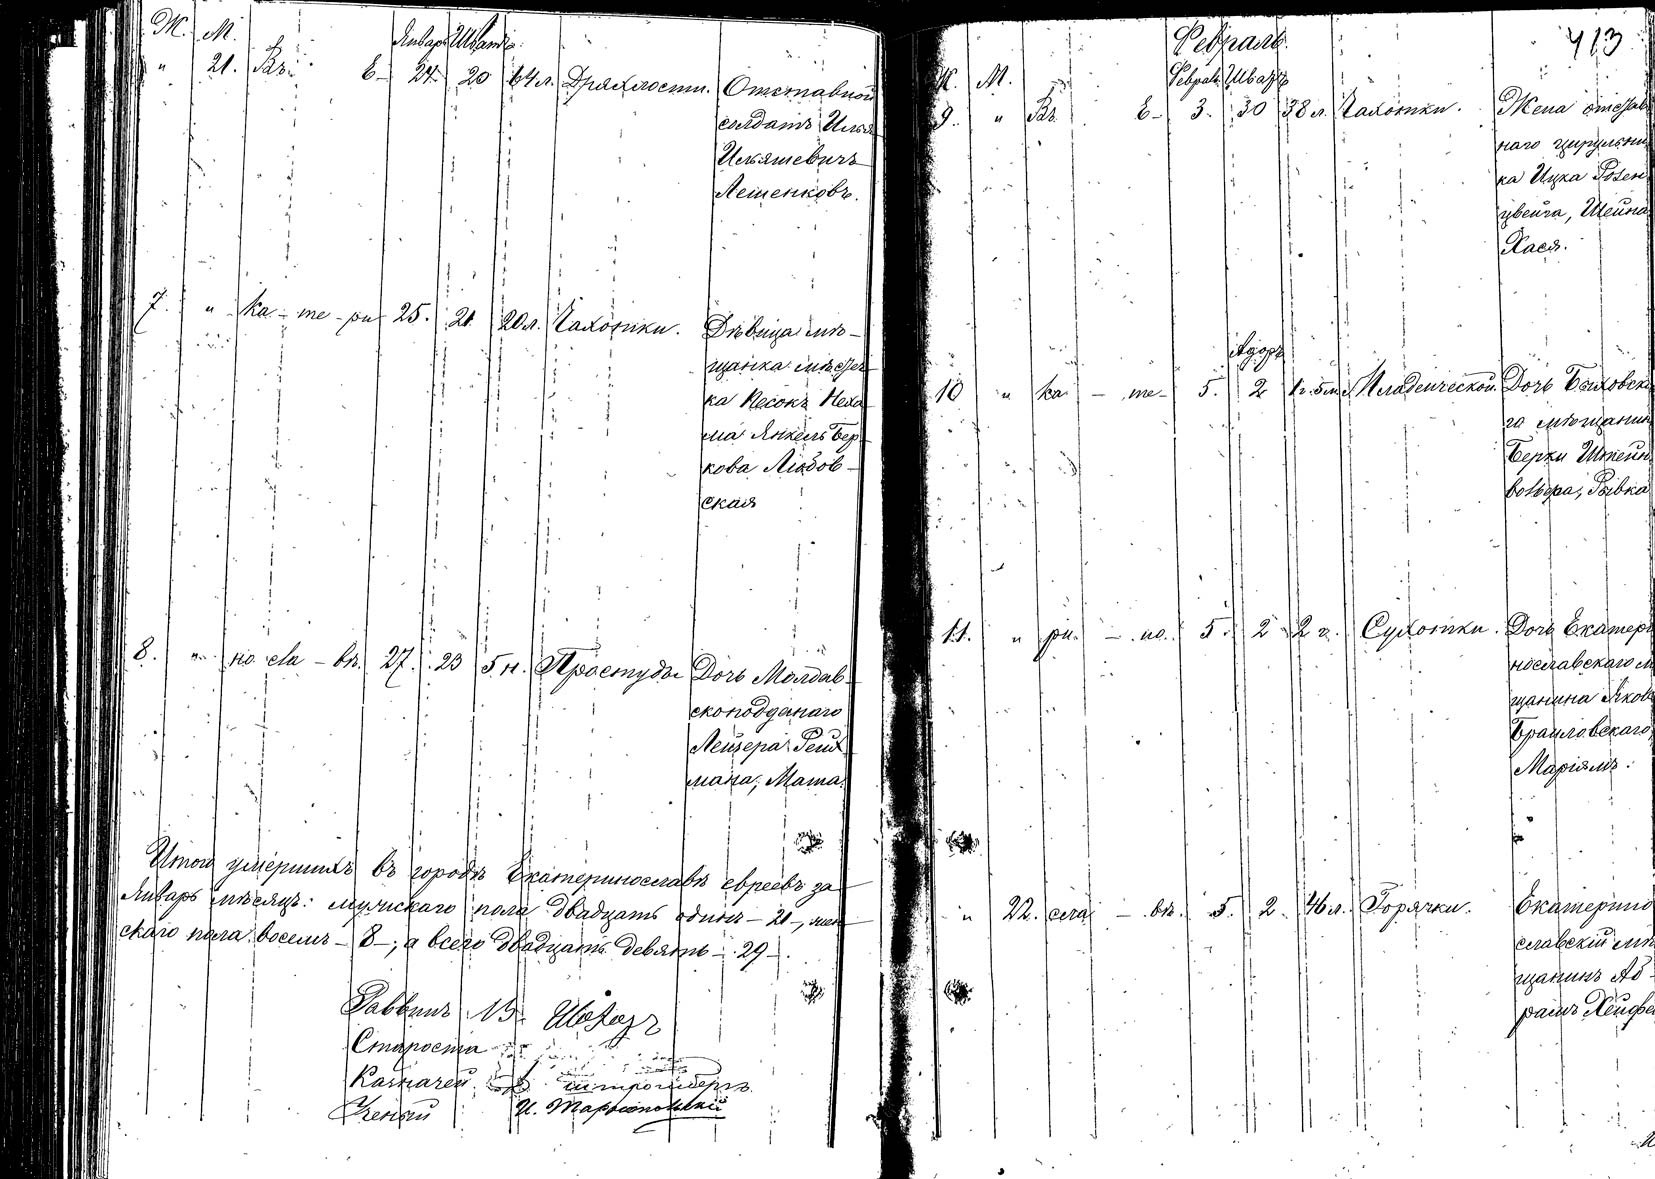 Ж. М.
Январь Шватъ
" 21. Въ Е- 24. 20 64 л. Дряхлости. Отставной
солдатъ Илья
Ильяшевичъ
Лешенковъ.
7. " ка - те - ри 25. 21 20 л. Чахотки. Дѣвица мѣ-
щанка мѣстеч-
ка Песокъ Неха-
ма Янкель Бер-
кова Любов-
ская
8. " но сла - вѣ. 27. 23 5 н. Простуды Дочь Молдав-
скоподданаго
Лейзера Рейх-
мана, Мата.
Итого умершихъ въ городѣ Екатеринославѣ евреевъ за
Январь мѣсяцъ: мужскаго пола двадцать одинъ - 21 -, жен-
скаго пола восемь - 8 -, а всего двадцать девять - 29 -.
Раввинъ
Староста
Казначей
Ученый
413
Февраль.
Ж. М.
Февраль Шватъ
9. " Въ Е- 3. 30 38 л. Чахотки. Жена отстав-
наго цирульни
ка Ицка Розен
цвейга, Шейна
Хася.
Адоръ
10 " ка - те - 5. 2 1 г. 5 м. Младенческой. Дочь Быховска
го мѣщанина
Берки Штейн
вольфа, Рывка
11. " ри - но. 5. 2 2 г. Сухотки. Дочь Екатери
нославскаго м
щанина Яков
Браиловскаго,
Маріямъ.
" 22. сла - вѣ. 5. 2. 46 л. Горячки. Екатерино
славскій мѣ
щанинъ Аб-
рамъ Хейфе